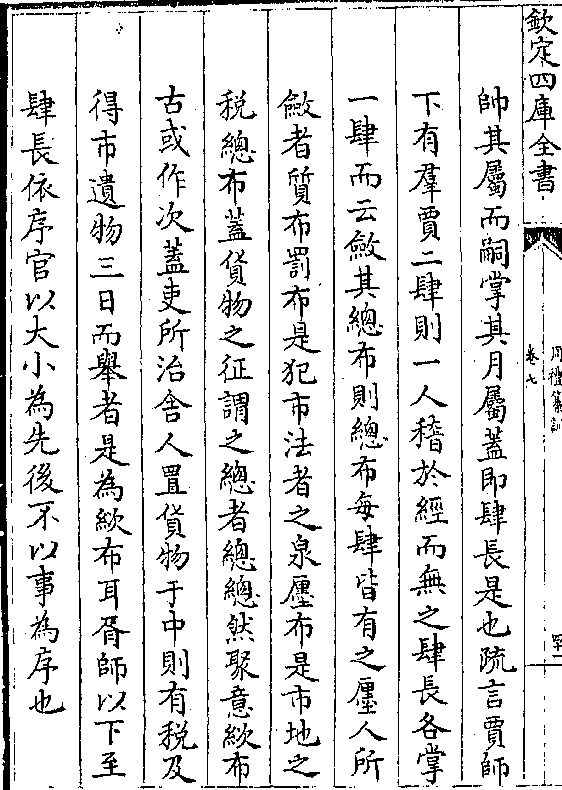 欽定四庫全書
周禮纂訓
卷七
帥其屬而嗣掌其月屬蓋即肆長是也疏言賈師
下有羣賈二肆則一人稽於經而無之肆長各掌
一肆而云斂其總布則總布每肆皆有之廛人所
斂者質布罰布是犯市法者之泉廛布是市地之
税總布蓋貨物之征謂之總者總總然聚意絘布
古或作次蓋吏所治舍人置貨物于中則有税及
得市遺物三日而舉者是為絘布耳胥師以下至
肆長依序官以大小為先後不以事為序也